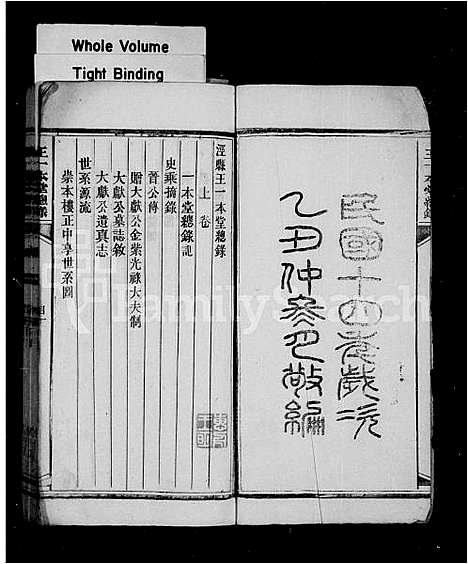 Whole Volume
Tight Binding
民國十四年歲次
乙丑仲冬月敬編
涇縣王一本堂總錄
上卷
一本堂總錄記
史乘摘錄
晉公傳
贈大獻公金紫光祿大夫制
大獻公墓誌敘
大獻公遺真志
世系源流
崇本樓正中享世系圖
FamilySearch